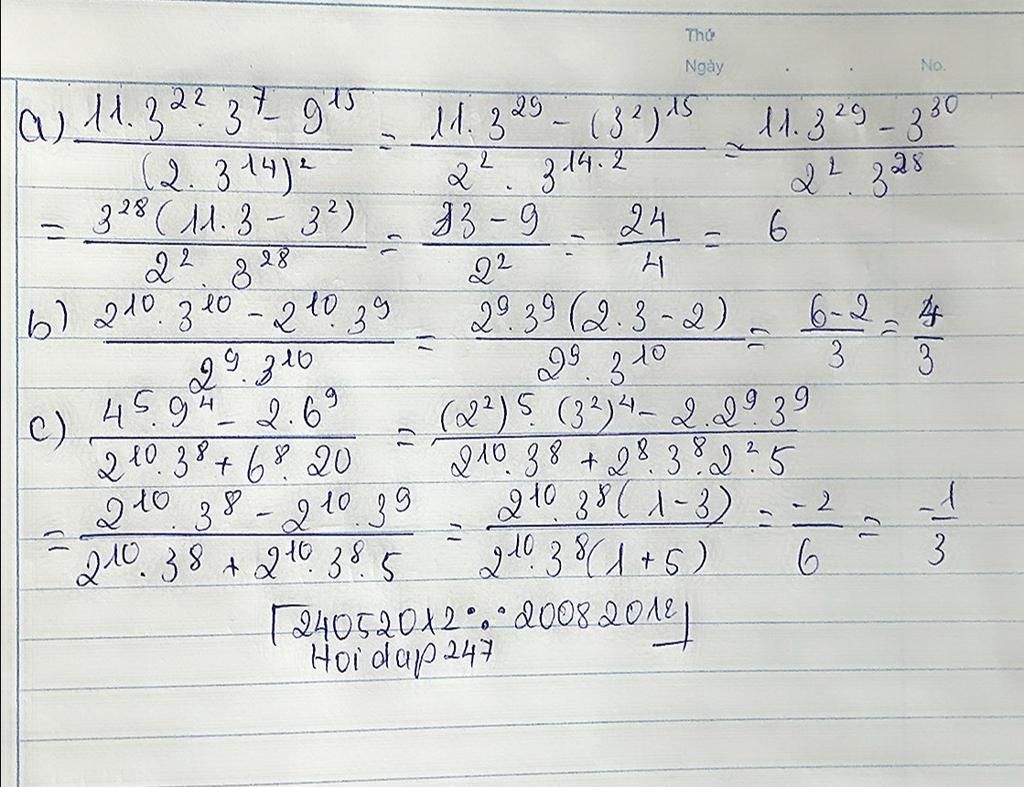 Thứ
Ngày . . No.
a) \frac{11.3^{22}.3^7 - 9^{15}}{(2.3^{14})^2} = \frac{11.3^{29} - (3^2)^{15}}{2^2.3^{14.2}} = \frac{11.3^{29} - 3^{30}}{2^2.3^{28}}
= \frac{3^{28}(11.3 - 3^2)}{2^2.3^{28}} = \frac{33 - 9}{2^2} = \frac{24}{4} = 6
b) \frac{2^{10}.3^{10} - 2^{10}.3^9}{2^9.3^{10}} = \frac{2^9.3^9(2.3 - 2)}{2^9.3^{10}} = \frac{6-2}{3} = \frac{4}{3}
c) \frac{4^5.9^4 - 2.6^9}{2^{10}.3^8 + 6^8.20} = \frac{(2^2)^5.(3^2)^4 - 2.2^9.3^9}{2^{10}.3^8 + 2^8.3^8.2^2.5}
= \frac{2^{10}.3^8 - 2^{10}.3^9}{2^{10}.3^8 + 2^{10}.3^8.5} = \frac{2^{10}.3^8(1-3)}{2^{10}.3^8(1+5)} = \frac{-2}{6} = \frac{-1}{3}
24052012 20082012
Hoi dap 247